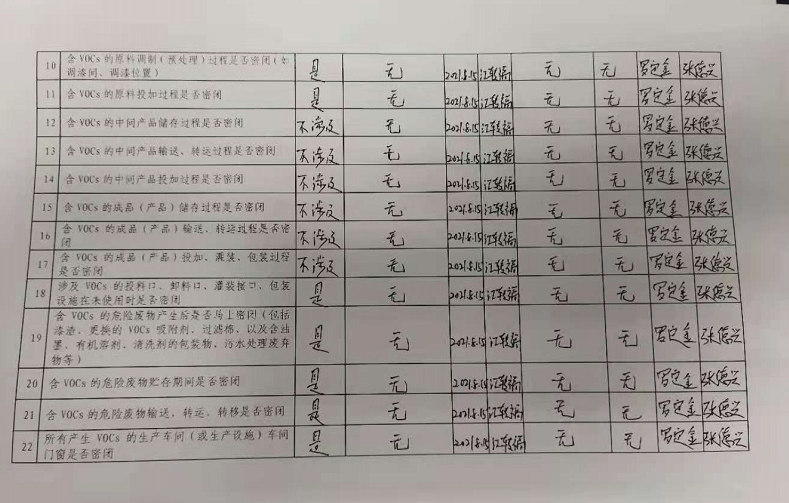 10 含 VOCs 的原料调制（预处理）过程是否密闭（如 是 无 2021.8.15 江敦福 无 无 罗定金 张德兴
调漆间、调漆位置）
11 含 VOCs 的原料投加过程是否密闭 是 无 2021.8.15 江敦福 无 无 罗定金 张德兴
12 含 VOCs 的中间产品储存过程是否密闭 不涉及 无 2021.8.15 江敦福 无 无 罗定金 张德兴
13 含 VOCs 的中间产品输送、转运过程是否密闭 不涉及 无 2021.8.15 江敦福 无 无 罗定金 张德兴
14 含 VOCs 的中间产品投加过程是否密闭 不涉及 无 2021.8.15 江敦福 无 无 罗定金 张德兴
15 含 VOCs 的成品（产品）储存过程是否密闭 不涉及 无 2021.8.15 江敦福 无 无 罗定金 张德兴
16 含 VOCs 的成品（产品）输送、转运过程是否密 不涉及 无 2021.8.15 江敦福 无 无 罗定金 张德兴
闭
17 含 VOCs 的成品（产品）投加、灌装、包装过程 不涉及 无 2021.8.15 江敦福 无 无 罗定金 张德兴
是否密闭
18 涉及 VOCs 的投料口、卸料口、灌装接口、包装 是 无 2021.8.15 江敦福 无 无 罗定金 张德兴
设施在未使用时是否密闭
19 含 VOCs 的危险废物产生后是否马上密闭（包括 是 无 2021.8.15 江敦福 无 无 罗定金 张德兴
漆渣、更换的 VOCs 吸附剂、过滤棉、以及含油
墨、有机溶剂、清洗剂的包装物、污水处理废弃
物等）
20 含 VOCs 的危险废物贮存期间是否密闭 是 无 2021.8.15 江敦福 无 无 罗定金 张德兴
21 含 VOCs 的危险废物输送、转运、转移是否密闭 是 无 2021.8.15 江敦福 无 无 罗定金 张德兴
22 所有产生 VOCs 的生产车间（或生产设施）车间 是 无 2021.8.15 江敦福 无 无 罗定金 张德兴
门窗是否密闭